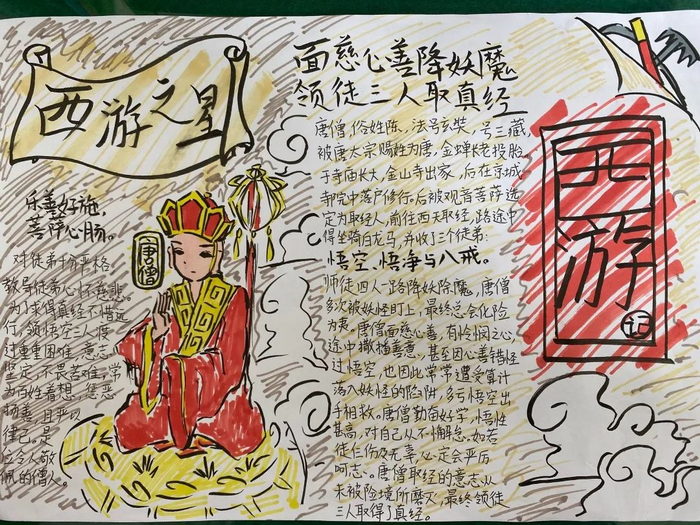 西游之星
乐善好施,
菩萨心肠。
对徒弟十分严格,
教导徒弟心怀慈悲。
为了求得真经不惜远
行,领悟空三人渡
过重重困难,意志
坚定,不畏苦难,常
为百姓着想,惩恶
扬善,且严以
律己。是
位令人敬
佩的僧人。
唐僧
面慈心善降妖魔
领徒三人取真经
唐僧,俗姓陈,法号玄奘,号三藏,
被唐太宗赐姓为唐,金蝉长老投胎。
于寺庙长大,金山寺出家,后在京城
寺院中落户修行,后被观音菩萨选
定为取经人,前往西天取经,路途中
得坐骑白龙马,并收了三个徒弟:
悟空、悟净与八戒。
师徒四人一路降妖除魔,唐僧
多次被妖怪盯上,最终总会化险
为夷。唐僧面慈心善,有怜悯之心,
途中撒播善意,甚至因心善错怪
过悟空,也因此常常遭受算计
落入妖怪的陷阱,多亏悟空出
手相救。唐僧勤奋好学,悟性
甚高,对自己从不懈怠。如若
徒仁伤及无辜,心定会严厉
呵志。唐僧取经的意志从
未被险境所磨灭,最终领徒
三人取得了真经。
西游
记